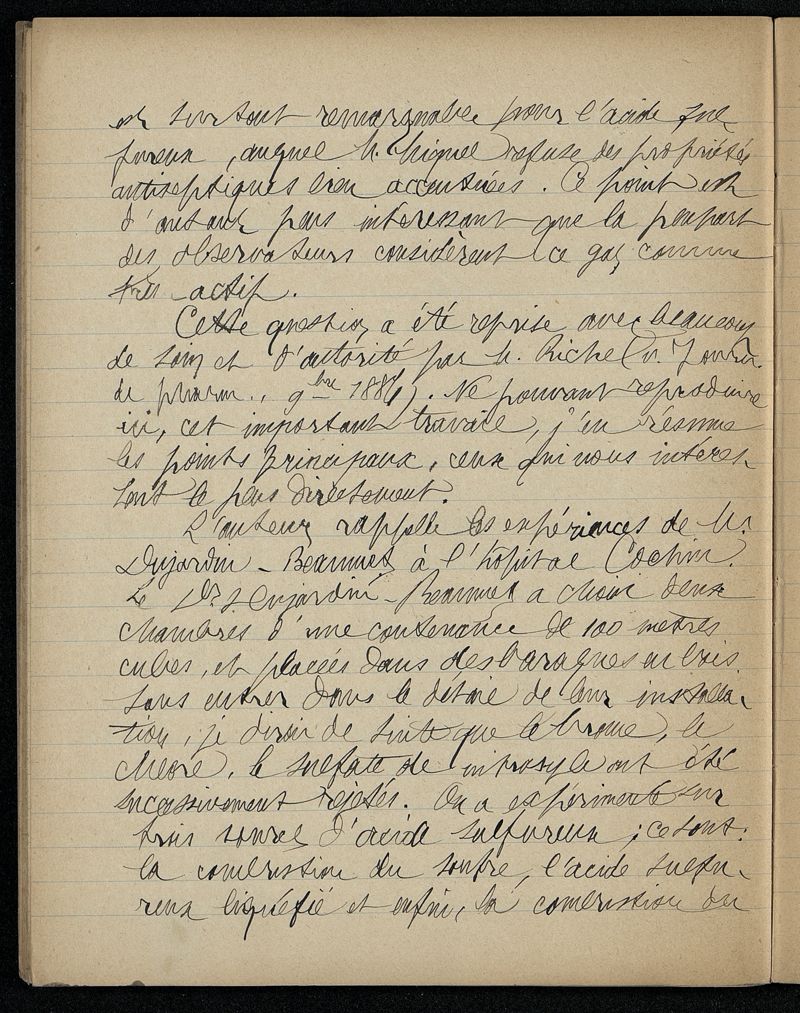 est surtout remarquable pour l'acide sul
fureux, auquel M. Miquel refuse des propriétés
antiseptiques bien accentuées. Ce point est
d'autant plus intéressant que la plupart
des observateurs considèrent ce gaz comme
très actif.
Cette question a été reprise avec beaucoup
de soin et d'autorité par M. Riche (v. Journ.
de pharm., 9bre 1886). Ne pouvant reproduire
ici, cet important travail, j'en résume
les points principaux, ceux qui nous intéres
sent le plus directement.
L'auteur rappelle les expériences de M.
Dujardin-Beaumetz à l'hôpital Cochin.
Le Dr Dujardin-Beaumetz a choisi deux
chambres d'une contenance de 100 mètres
cubes, et placées dans des baraques en bois.
Sans entrer dans le détail de leur installa-
tion, je dirai de suite que le brome, le
chlore, le sulfate de nitrosyle ont été
successivement rejetés. On a expérimenté sur
trois sources d'acide sulfureux ; ce sont :
la combustion du soufre, l'acide sulfu-
reux liquéfié et enfin, la combustion du